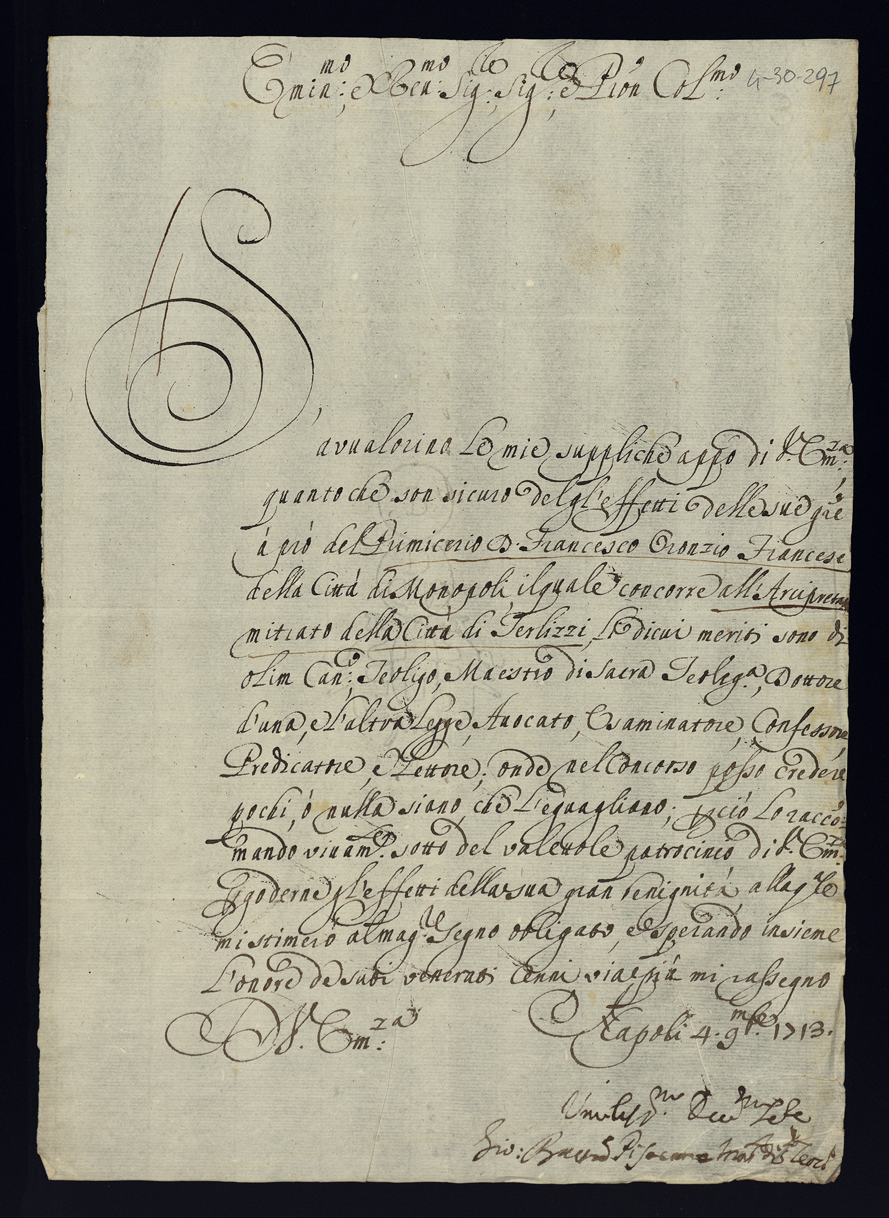 Emin:mo, e Ren:mo Sig:re, Sig:re, e Prōn Col:mo
4-30-297
S'avualorino le mie suppliche appō di V. Em:za,
quanto che son sicuro delgl'effetti delle sue grē
à prò del Primicerio D. Francesco Oronzio Francese
della Città di Monopoli, il quale concorre all'Arcipreta
mitiato della Città di Terlizzi, Le di cui meriti sono di
olim Can:co Teoligo, Maestro di Sacra Teolog.a, Dottore
d'una, e l'altra Legge, Auocato, Esaminatore, Confessore,
Predicatore, e Lettore; onde nel Concorso posso credere
pochi, ò nulla siano, che l'eguagliano; p ciò lo racco=
mando viuam.te sotto del valeuole patrocinio di V. Em:za
p goderne gl'effetti della sua gran benignità, alla q.le
mi stimerò al mag.re segno obligato, e sperando insieme
l'onore de suoi venerati cenni via più mi rassegno
D V. Em:za
Napoli 4. 9mbre 1713.
Gio: